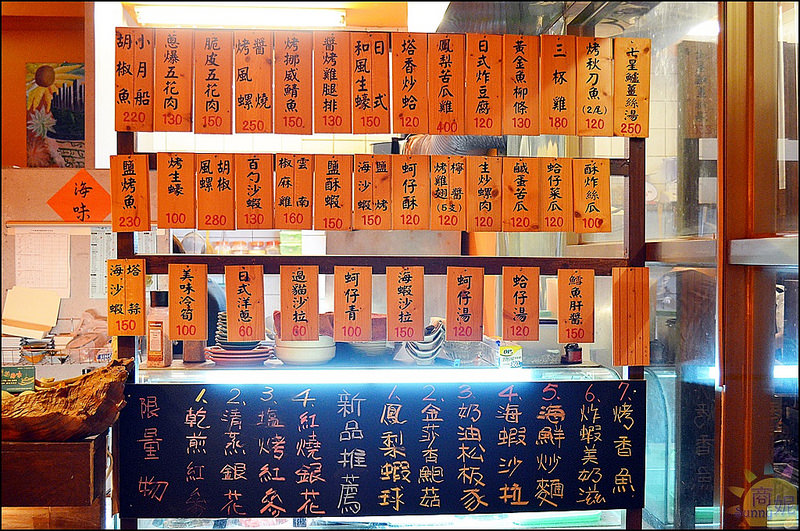 小月船
胡椒魚
220
蔥爆五花肉
130
脆皮五花肉
150
醬燒
烤風螺
250
烤挪威鯖魚
150
醬烤雞腿排
130
日式
和風生蠔
150
塔香炒蛤
120
鳳梨苦瓜雞
400
日式炸豆腐
120
黃金魚柳條
130
三杯雞
180
烤秋刀魚
(2尾)
120
七星鱸薑絲湯
250
鹽烤魚
230
烤生蠔
100
胡椒
風螺
280
百勺沙蝦
130
雲南
椒麻雞
160
鹽酥蝦
150
鹽烤
海沙蝦
150
蚵仔酥
120
檸醬
烤雞翅
(5支)
120
生炒螺肉
120
鹹蛋苦瓜
120
蛤仔菜瓜
120
酥炸絲瓜
100
海味
塔蒜
海沙蝦
150
美味冷筍
100
日式洋蔥
60
過貓沙拉
60
蚵仔青
100
海蝦沙拉
150
蚵仔湯
120
蛤仔湯
120
鱈魚肝醬
150
限量物
1.乾煎紅參
2.清蒸銀花
3.塩烤紅參
4.紅燒銀花
新品推薦
1.鳳梨蝦球
2.金莎香鮑菇
3.奶油松板豕
4.海蝦沙拉
5.海鮮炒麵
6.炸蝦美奶滋
7.烤香魚
商妮
Sunny